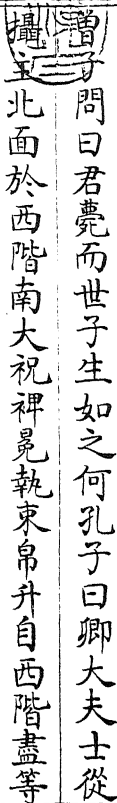 曾子問曰君薨而世子生如之何孔子曰卿大夫士從
攝主北面於西階南大祝裨冕執束帛升自西階盡等